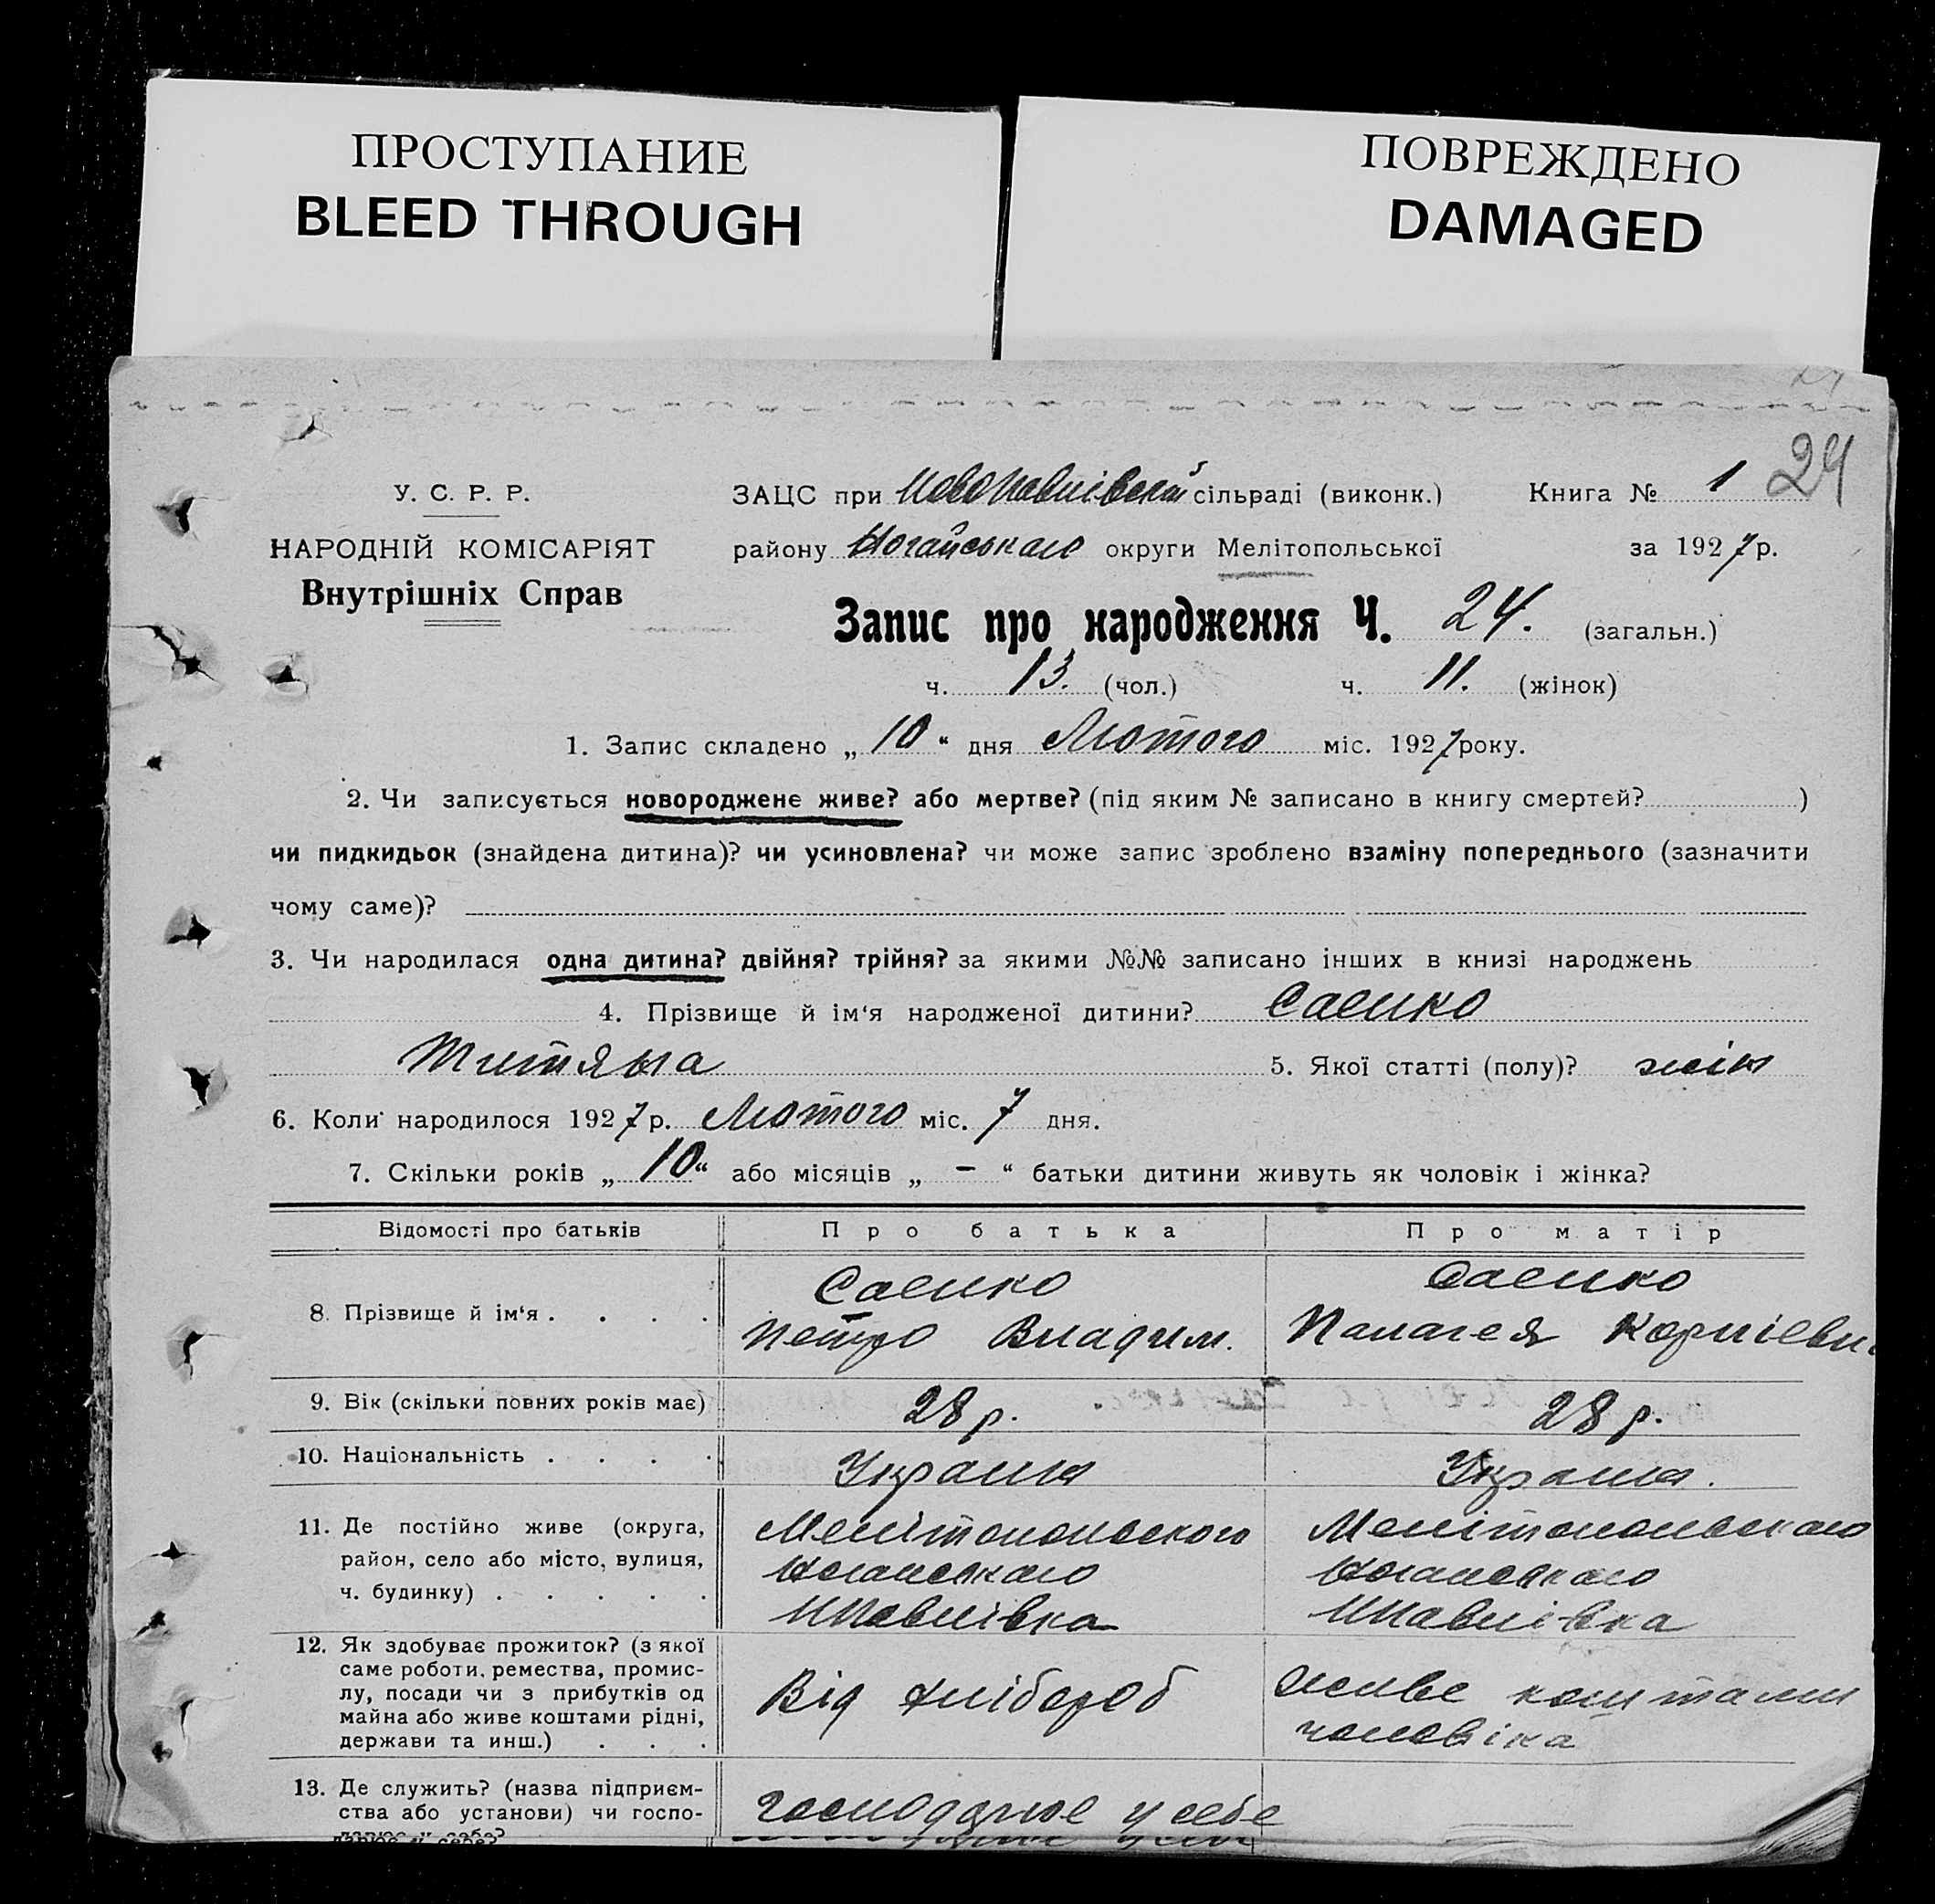 ПРОСТУПАНИЕ
BLEED THROUGH
ПОВРЕЖДЕНО
DAMAGED
24
У. С. Р. Р.
НАРОДНІЙ КОМІСАРІЯТ
Внутрішніх Справ
ЗАЦС при Новопавлівській сільраді (виконк.) Книга № 1
району Ногайського округи Мелітопольської за 1927 р.
Запис про народження Ч. 24. (загальн.)
ч. 13. (чол.) ч. 11. (жінок)
1. Запис складено „ 10 “ дня Лютого міс. 1927 року.
2. Чи записується новороджене живе? або мертве? (під яким № записано в книгу смертей? )
чи пидкидьок (знайдена дитина)? чи усиновлена? чи може запис зроблено взаміну попереднього (зазначити
чому саме)?
3. Чи народилася одна дитина? двійня? трійня? за якими №№ записано інших в книзі народжень
4. Прізвище й ім‘я народженої дитини? Саенко
Титяна 5. Якої статті (полу)? жін
6. Коли народилося 1927 р. Лютого міс. 7 дня.
7. Скільки років „ 10 “ або місяців „ – “ батьки дитини живуть як чоловік і жінка?
Відомості про батьків Про батька Про матір
8. Прізвище й ім‘я . . . . Саенко Саенко
Петро Владим. Палагея Корніевн
9. Вік (скільки повних років має) 28 р. 28 р.
10. Національність . . . . Україн Україн.
11. Де постійно живе (округа, Мелітопольского Мелітопольского
район, село або місто, вулиця, Ногайського Ногайського
ч. будинку) . . . . . НПавлівка НПавлівка
12. Як здобуває прожиток? (з якої
саме роботи, ремества, промис-
лу, посади чи з прибутків од Від хлібороб живе коштами
майна або живе коштами рідні, чоловіка
держави та инш.) . . .
13. Де служить? (назва підприєм-
ства або установи) чи госпо- господарює у себе
дарює у себе?